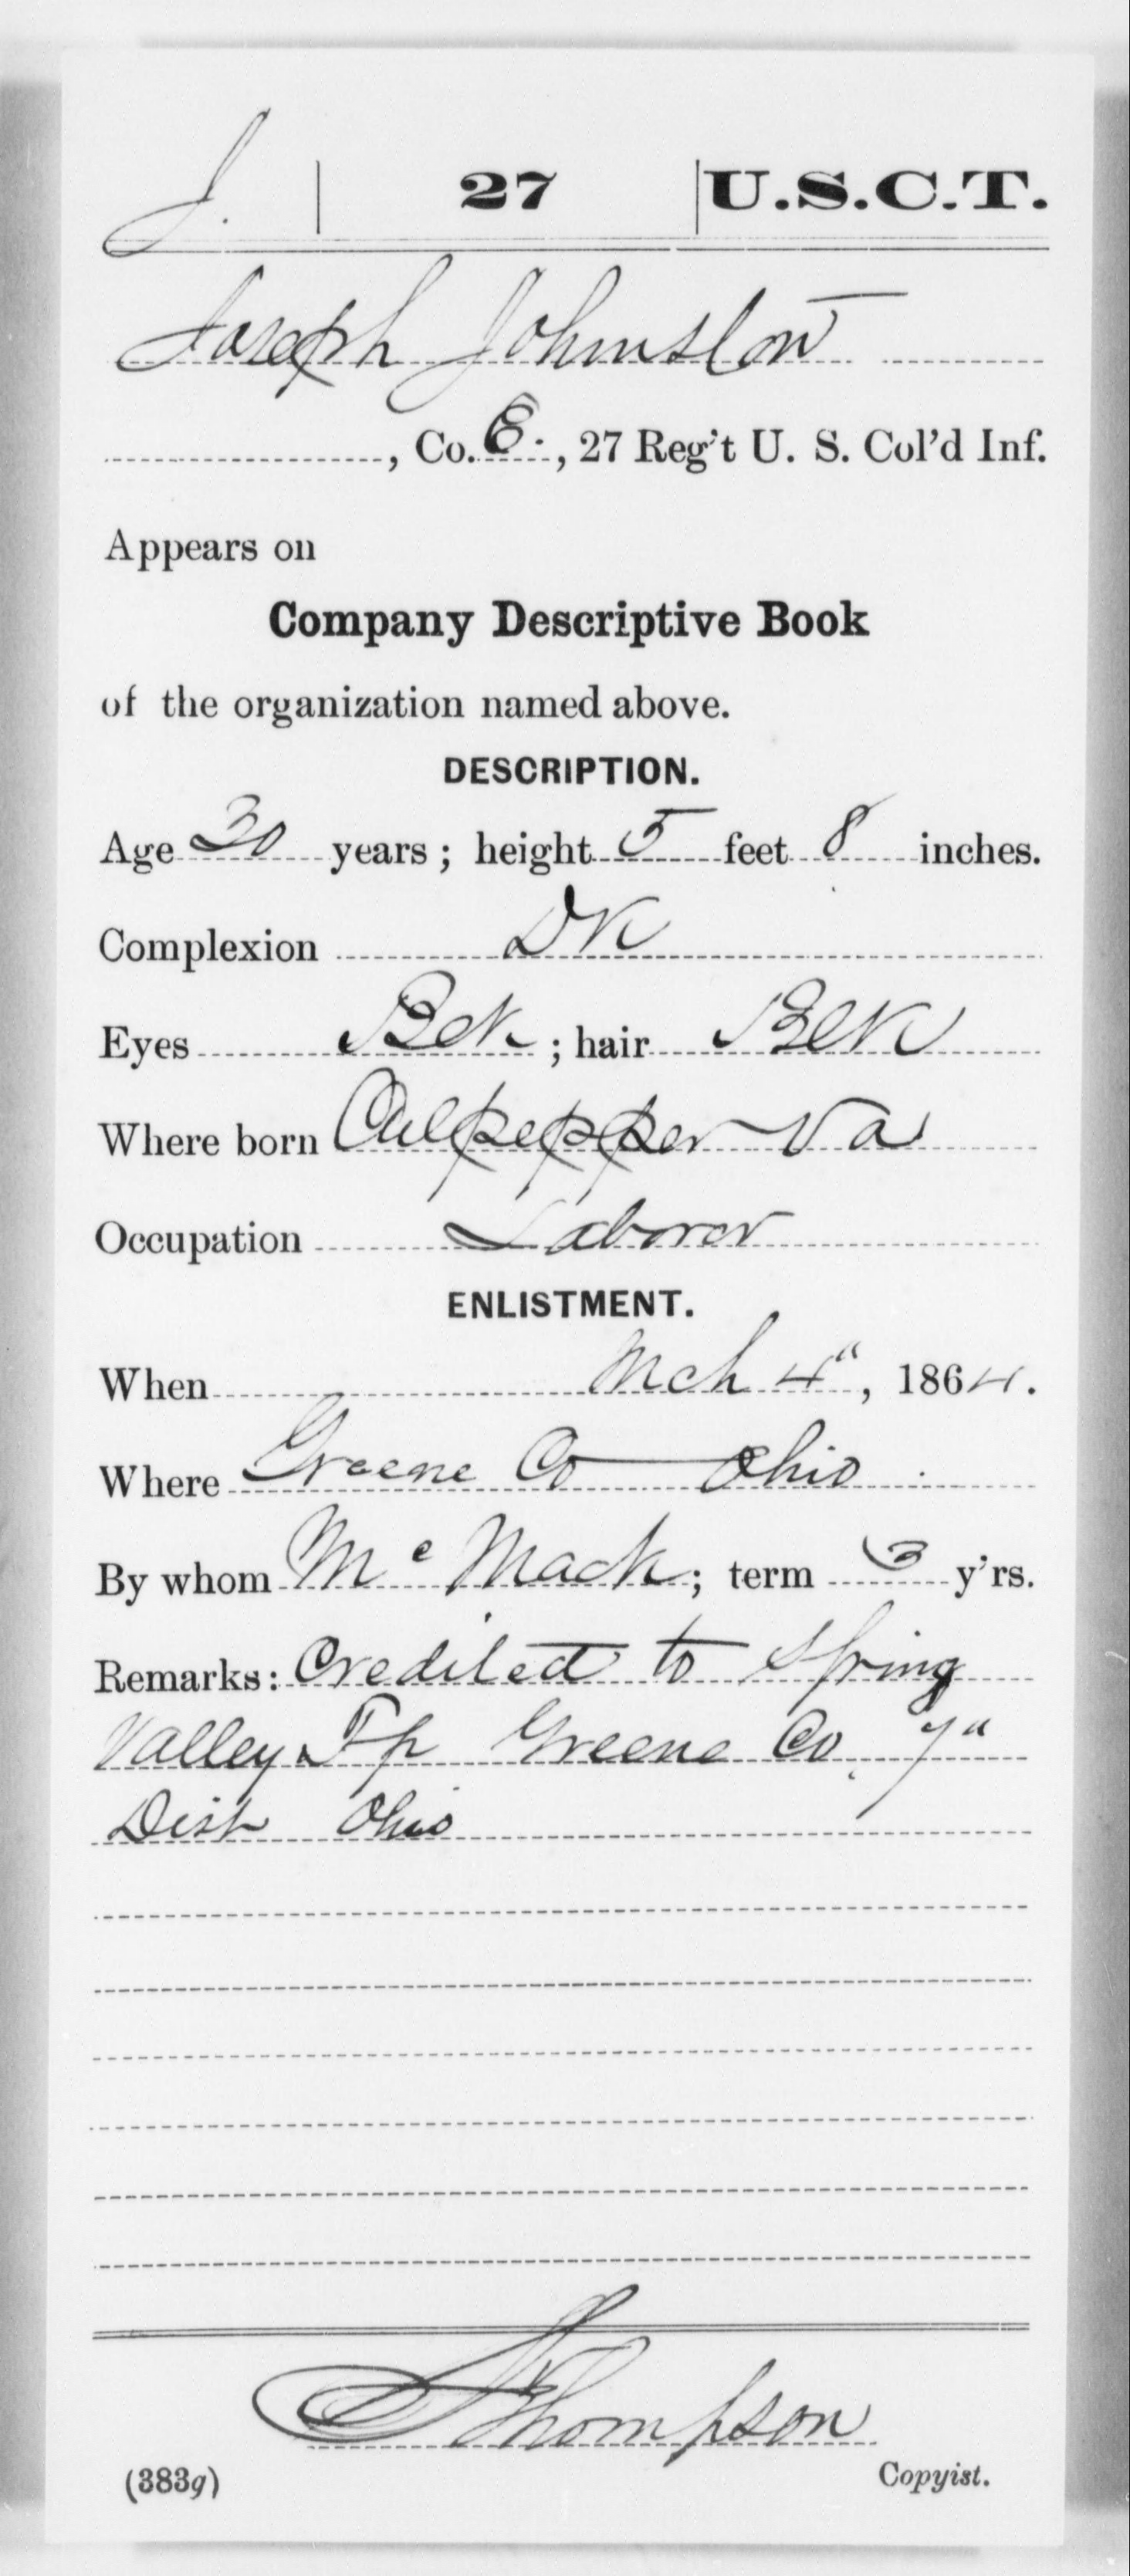 J. | 27 | U.S.C.T.
Joseph Johnston
, Co. E., 27 Reg't U. S. Col'd Inf.
Appears on
Company Descriptive Book
of the organization named above.
DESCRIPTION.
Age 30 years; height 5 feet 8 inches.
Complexion DK
Eyes Blk; hair Blk
Where born Culpepper Va
Occupation Laborer
ENLISTMENT.
When Mch 4", 1864.
Where Greene Co Ohio
By whom Mc Mack; term 3 y'rs.
Remarks: Credited to Spring
Valley Tp Greene Co. 7"
Dist Ohio
Thompson
(383g) Copyist.